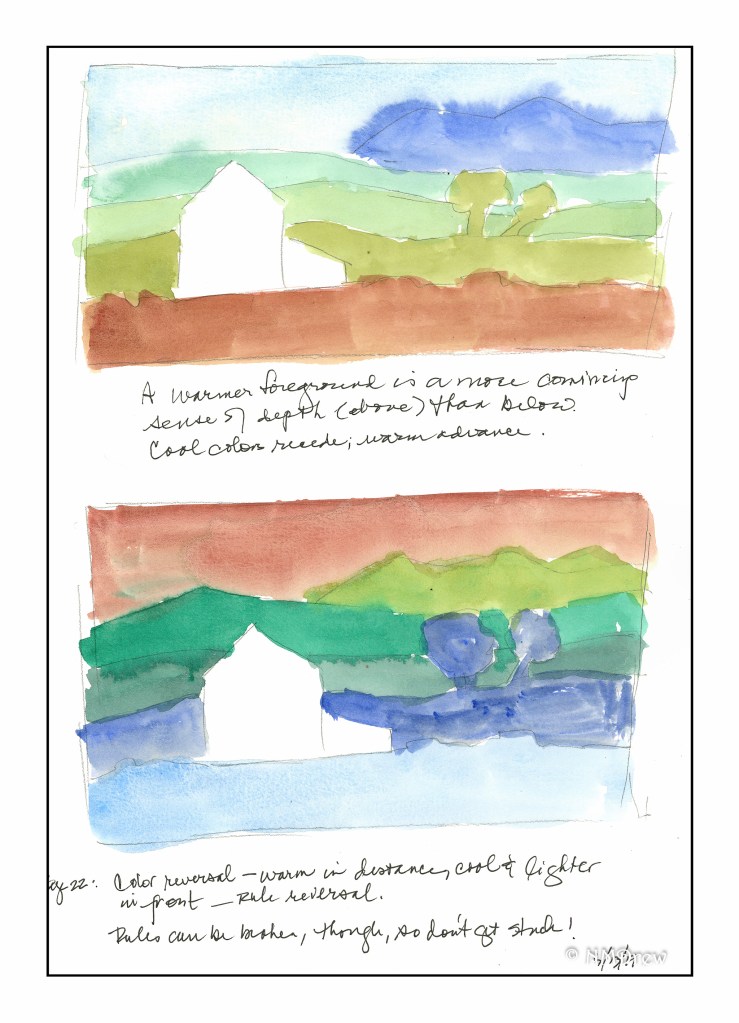 A warmer foreground is a more convincing
sense of depth (above) than below.
Cool colors recede; warm advance.
pg 22: Color reversal – warm in distance, cool & lighter
in front – Rule reversal.
Rules can be broken, though, so don't get stuck!
© N.M. Drew